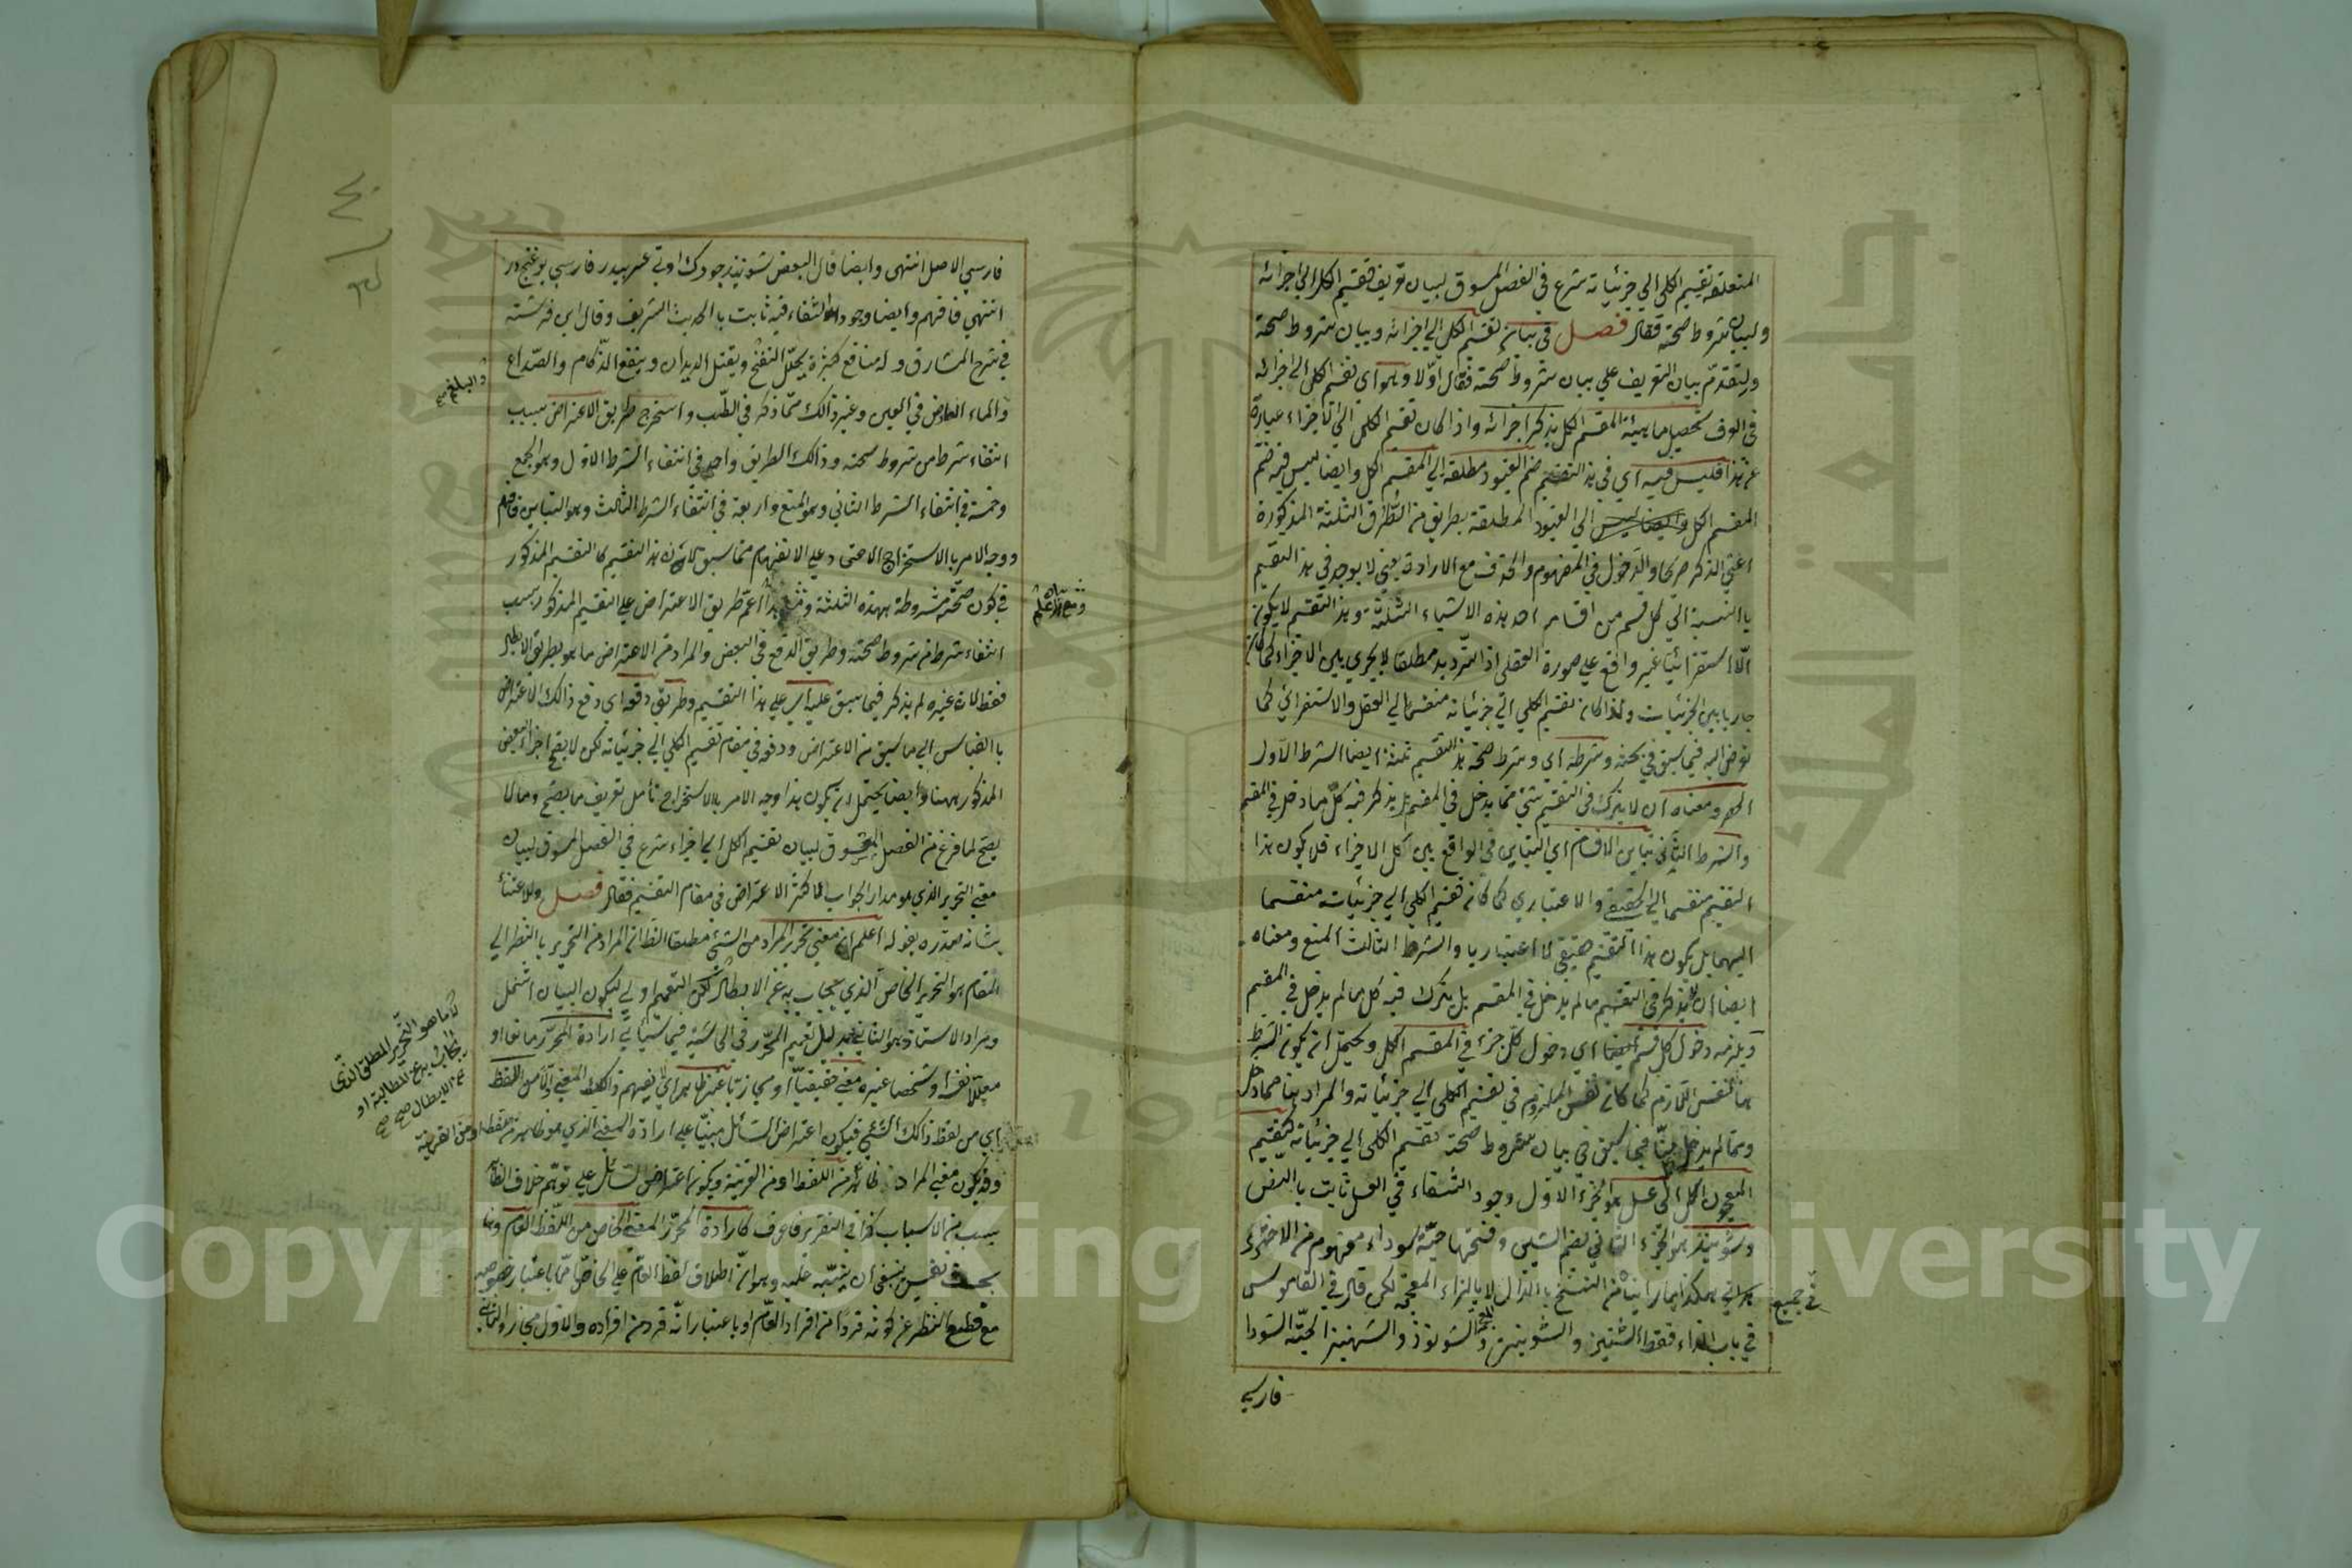 المتعلقة بتقسيم الكلي الي جزئياته شرع في الفصل المسوق لبيان تعريف تقسيم الكل الي اجزائه
ولبيان شروط صحته فقال فصل في بيان تقسيم الكل الي اجزائه وبيان شروط صحته
ولتقدم بيان التعريف علي بيان شروط صحته فقال اولا وهو اي تقسيم الكل الي اجزائه
في العرف تحصيل ماهية المقسم الكل بذكر اجزائه واذا كان تقسيم الكل الي الاجزاء عبارة
عن هذا فليس فيه اي في هذا التقسيم ضم القيود مطلقة الي المقسم الكل وايضا ليس فيه ضم
المقسم الكل الي القيود المطلقة بطريق من الطرق الثلثة المذكورة
اعني الذكر صريحا والدخول في المفهوم والحذف مع الارادة يعني لا يوجد في هذا التقسيم
باالنسبة الي كل قسم من اقسامه احد هذه الاشياء الثلثة وهذا التقسيم لا يكون
الا استقرائيا غير واقع علي صورة العقلي اذ الترديد مطلقا لا يجري بين الاجزاء كما كان
جاريا بين الجزئيات ولهذا كان تقسيم الكلي الي جزئياته منقسما الي العقلي والاستقرائي كما
تعرض اليه فيما سبق في بحثه وشرطه اي وشرط صحة هذا التقسيم ثلثة ايضا الشرط الاول
الجمع ومعناه ان لا يترك في التقسيم شئ مما يدخل في المقسم بل يذكر فيه كل ما دخل في المقسم
والشرط الثاني تباين الاقسام اي التباين في الواقع بين كل الاجزاء فلا يكون هذا
التقسيم منقسما الي الحقيقي والاعتباري كما كان تقسيم الكلي الي جزئياته منقسما
اليهما بل يكون هذا التقسيم حقيقي لا اعتباريا والشرط الثالث المنع ومعناه
ايضا ان لا يذكر في التقسيم ما لم يدخل في المقسم بل يترك فيه كل ما لم يدخل في المقسم
ويلزمه دخول كل قسم ايضا اي دخول كل جزء في المقسم الكل ويحتمل ان يكون الشرط
هنا نفس اللازم كما كان نفس الملزوم في تقسيم الكلي الي جزئياته والمراد بنا مما دخل
ومما لم يدخل فيما سبق في بيان شروط صحة تقسيم الكلي الي جزئياته كتقسيم
المعجون الكل الي عسل هو الجزء الاول وجود الشفاء في العسل ثابت باالنص
وشونيز هو الجزء الثاني بضم الشين وفتحها حبة سوداء مفهوم من الاختري
هكذا ما رأينا من النسخ باالذال لا باالزاء المعجمة لكن قال في القاموس
في جميع
في باب الزاء فقط الشينيز والشونيز والشونوز والشهنيز الحبة السودا
فارسي
فارسي الاصل انتهى وايضا قال البعض شونيذ چورك اوتي عربيدر فارسي بوغنج در
انتهي فافهم وايضا وجود الشفاء فيه ثابت باالحديث الشريف وقال ابن فرشته
في شرح المشارق وله منافع كثيرة يحلل النفخ ويقتل الديدان وينفع الزكام والصداع
والبلغم
والماء العارض في العين وغير ذالك مما ذكر في الطب واستخرج طريق الاعتراض بسبب
انتفاء شرط من شروط صحته وذالك الطريق واحد في انتفاء الشرط الاول وهو الجمع
وخمسة في انتفاء الشرط الثاني وهو المنع واربعة في انتفاء الشرط الثالث وهو التباين فافهم
ووجه الامر باالاستخراج الاعتماد علي الانفهام مما سبق لان هذا التقسيم كالتقسيم المذكور
في كون صحته مشروطة بهذه الثلثة طريق الاعتراض علي التقسيم المذكور بسبب
انتفاء شرط من شروط صحته وطريق الدفع في البعض والمراد من الاعتراض ما هو بطريق الابطال
فقط لان غيره لم يذكر فيما سبق عليه اي علي هذا التقسيم وطريق دفعه اي دفع ذالك الاعتراض
باالقياس الي ما سبق من الاعتراض ودفعه في مقام تقسيم الكلي الي جزئياته لكن لا يقع اجزاء البعض
المذكور ههنا وايضا يحتمل ان يكون هذا وجه الامر باالاستخراج تأمل تعريف ما يصح وما لا
يصح لما فرغ من الفصل المسوق لبيان تقسيم الكل الي اجزاء شرع في الفصل المسوق لبيان
معني التحرير الذي هو مدار الجواب لاكثر الاعتراض في مقام التقسيم فقال فصل وللاعتناء
بشانه صدره بقوله اعلم ان معني تحرير المراد من الشئ مطلقا الظان المراد من التحرير باالنظر الي
المقام هو التحرير الخاص الذي يجاب به عن الابطال لكن التعميم اولي ليكون البيان اشمل
ومراد الاستاذ هو الثاني بدليل تعميم المحرر في الحاشية فيما سيأتي ارادة المحرر مانعا او
لا ما هو التحرير المطلق الذي
يجاب به عن المطالبة او
عن الابطال صح صح
معللا نفسه او شخصا غيره معني حقيقيا او مجازيا غير ظاهر اي يفهم ذالك المعني من اللفظ
اي من لفظ ذالك الشئ فيكون اعتراض السائل مبنيا علي ارادة المعني الذي هو ظاهر من اللفظ او من القرينة
وقد يكون معني المراد ظاهرا من اللفظ او من القرينة ويكون اعتراض السائل علي توهم خلاف الظاهر
بسبب من الاسباب كذا في التقرير فاعرف كارادة المحرر المعني الخاص من اللفظ العام وهنا
بحث نفيس ينبغي ان يتنبه عليه وهو ان اطلاق لفظ العام علي الخاص اما باعتبار خصوصه
مع قطع النظر عن كونه فردا من افراد العام او باعتبار انه فرد من افراده والاول مجاز والثاني
Copyright © King Saud University
جامعة الملك سعود